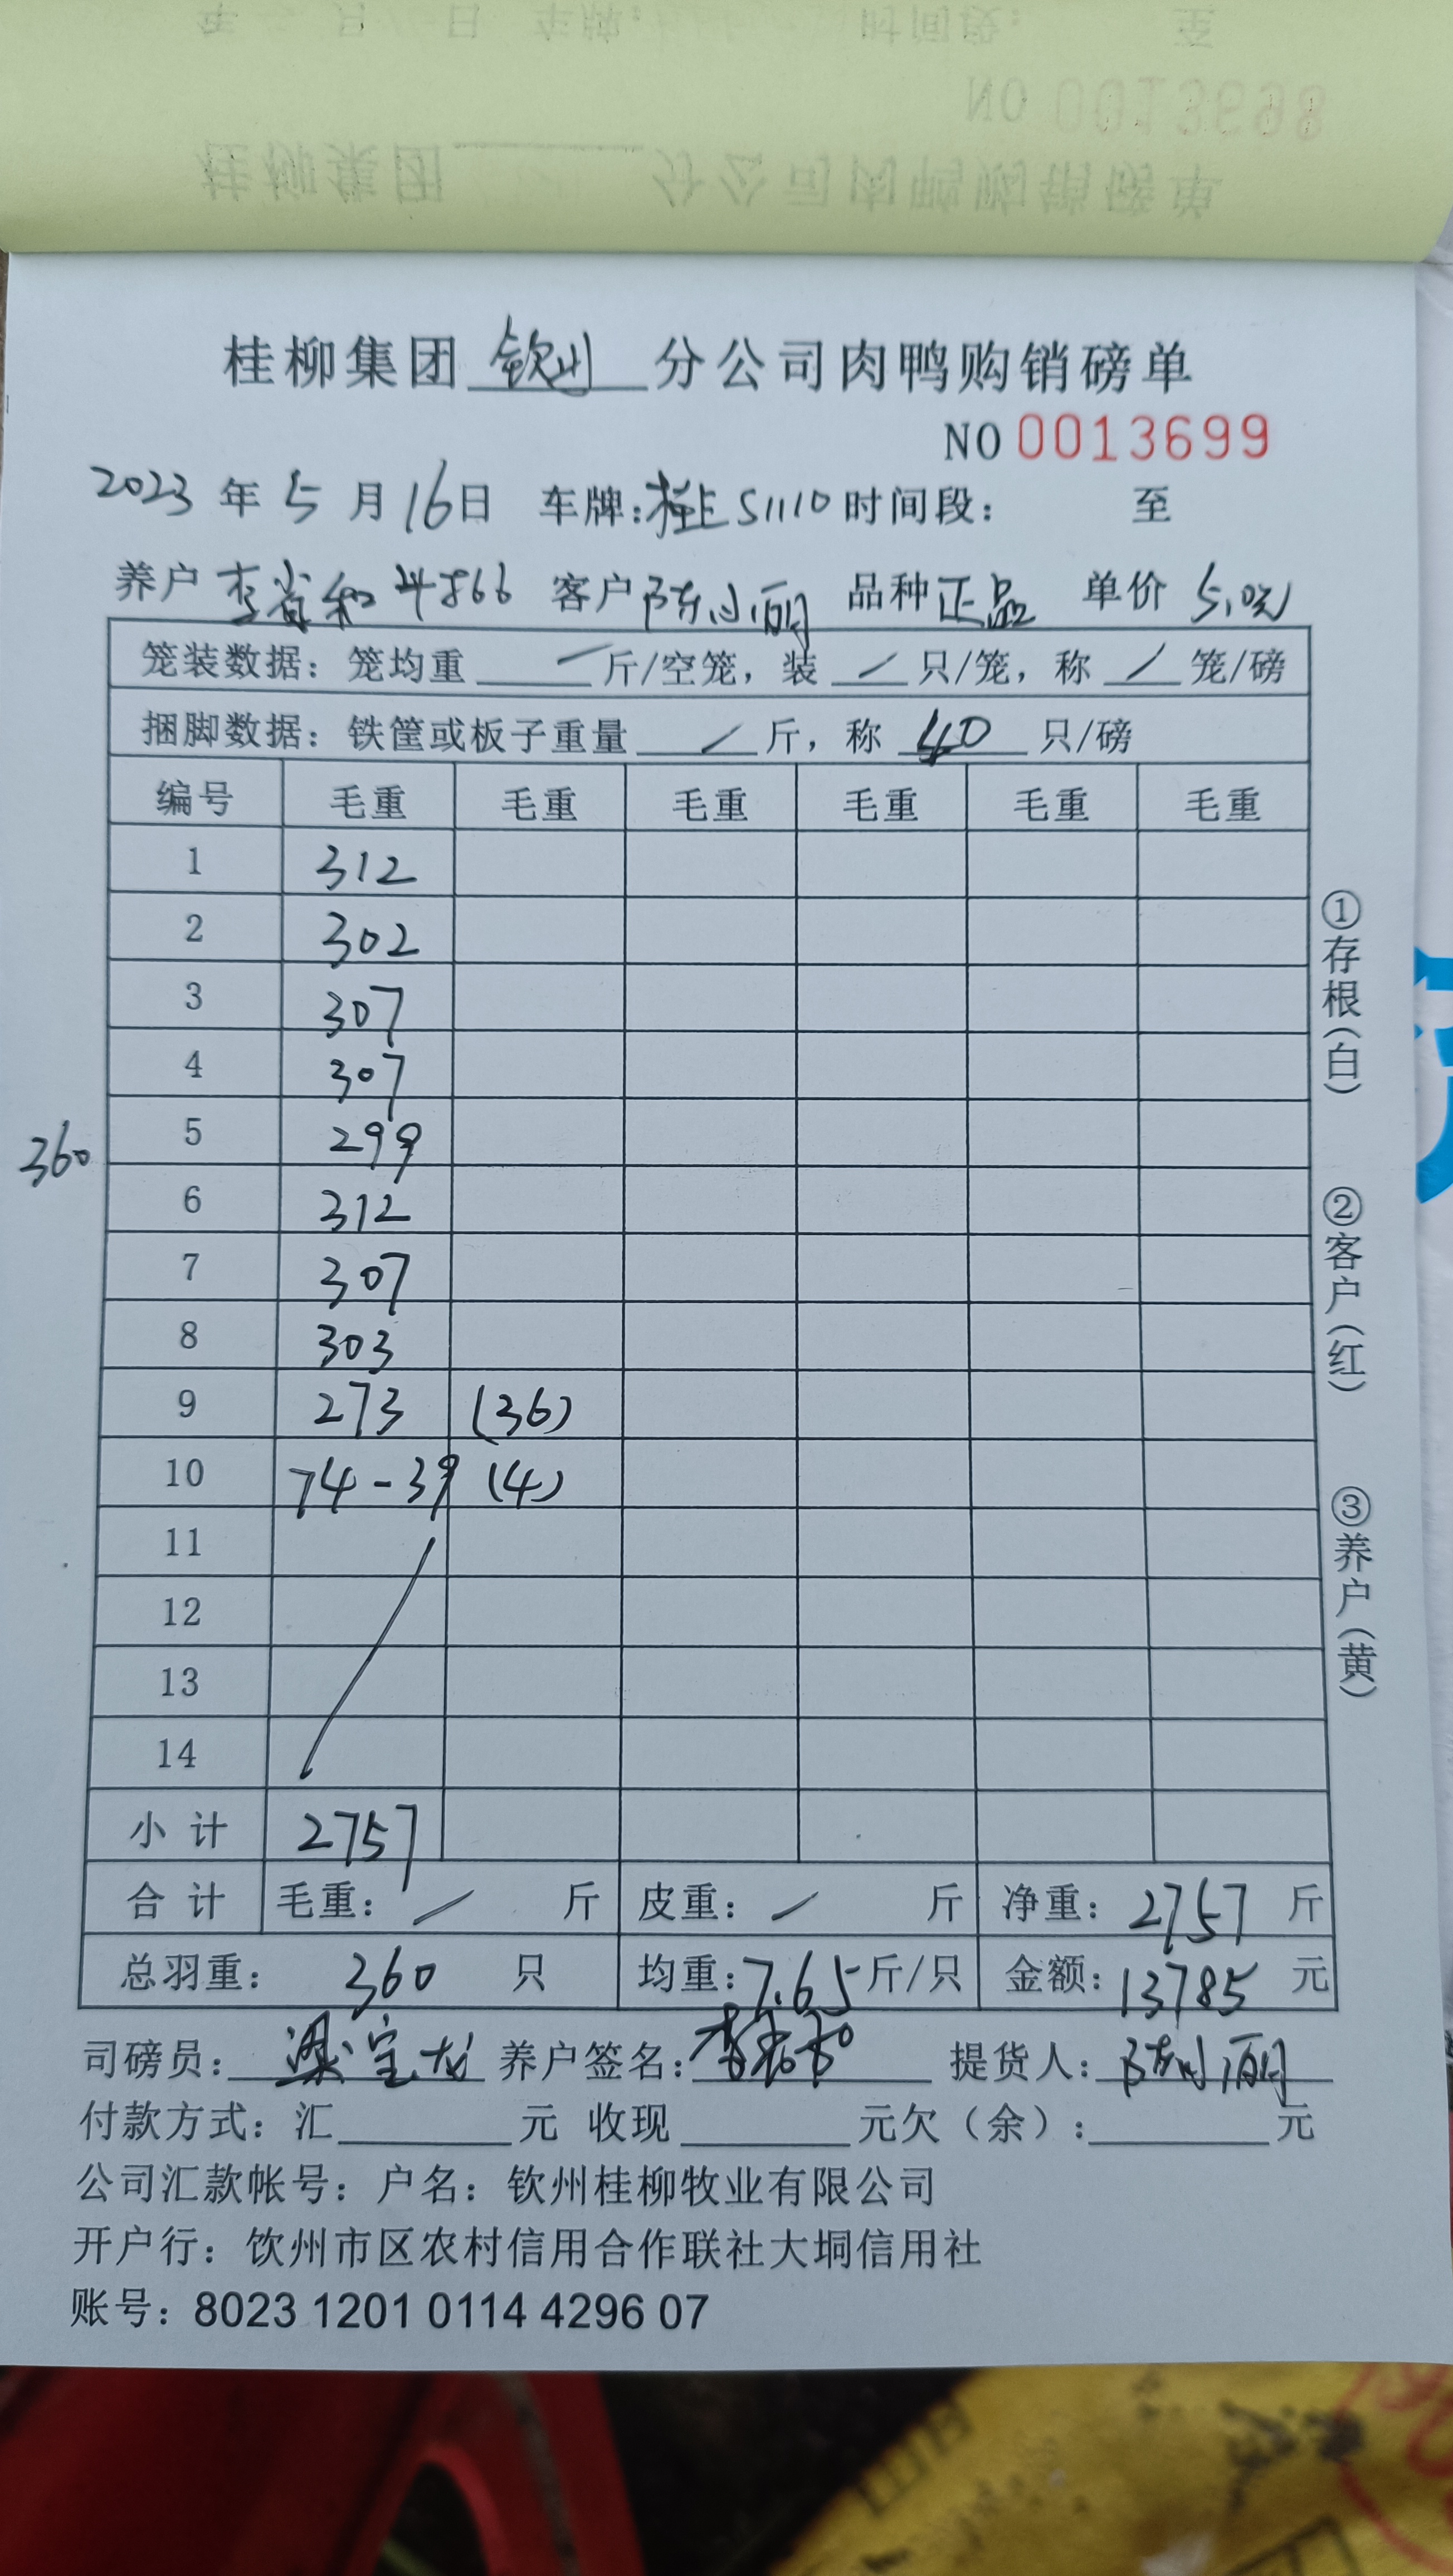 NO 0013698
桂柳集团 分公司肉鸭购销磅单
桂柳集团 钦州 分公司肉鸭购销磅单
NO 0013699
2023 年 5 月 16 日 车牌: S1110 时间段: 至
养户 李肖和 4866 客户 陈小丽 品种 正品 单价 5.0元
笼装数据: 笼均重 / 斤/空笼, 装 / 只/笼, 称 / 笼/磅
捆脚数据: 铁筐或板子重量 / 斤, 称 40 只/磅
编号 毛重 毛重 毛重 毛重 毛重 毛重
1 312
2 302
3 307
4 307
5 299
360
6 312
7 307
8 303
9 273 (36)
10 74-39 (4)
11
12
13
14
小计 2757
合计 毛重: / 斤 皮重: / 斤 净重: 2757 斤
总羽重: 360 只 均重: 7.65 斤/只 金额: 13785 元
司磅员: 梁宝龙 养户签名: 提货人: 陈小丽
付款方式: 汇 元 收现 元欠(余): 元
公司汇款帐号: 户名: 钦州桂柳牧业有限公司
开户行: 钦州市区农村信用合作联社大垌信用社
账号: 8023 1201 0114 4296 07
①存根(白)
②客户(红)
③养户(黄)